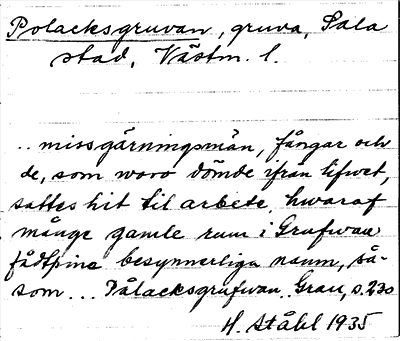 Polacksgruvan, gruva, Sala
stad, Västm. l.
.. missgärningsmän, fångar och
de, som woro dömde ifrån lifwet,
sattes hit til arbete, hwaraf
månge gamle rum i Grufwan
fådt sine besynnerliga namn, så-
som ... Pålacksgrufwan. Grau, s. 230
H. Ståhl 1935